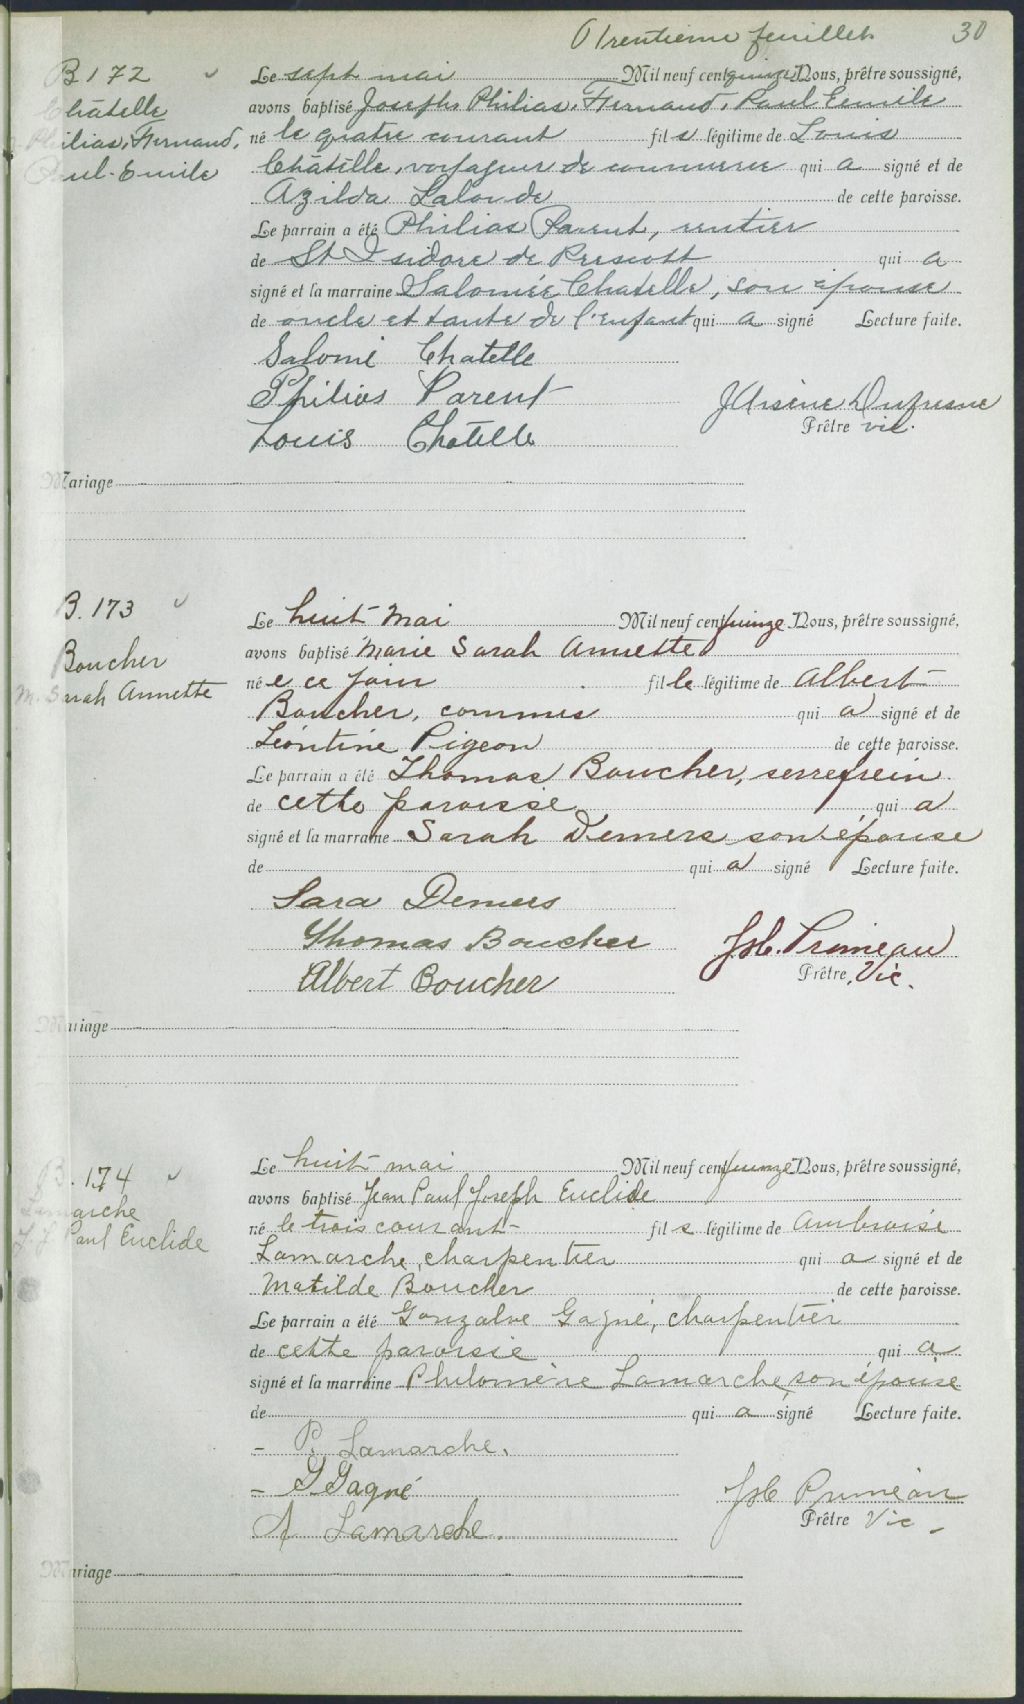 Trentieme feuillet. 30
B 172
Châtelle
Philias, Fernand,
Paul-Emile
Le sept mai Mil neuf cent quinze Nous, prêtre soussigné,
avons baptisé Joseph, Philias, Fernand, Paul Emile
né le quatre courant fil s légitime de Louis
Châtelle, voyageur de commerce qui a signé et de
Azilda Lalonde de cette paroisse.
Le parrain a été Philias Parent, rentier
de St Isidore de Prescott qui a
signé et la marraine Salomée Chatelle, son épouse
de oncle et tante de l'enfant qui a signé Lecture faite.
Salomé Chatelle
Philias Parent
Louis Chatelle
J Arsène Dufresne
Prêtre vic.
Mariage
B. 173
Boucher
M. Sarah Annette
Le huit mai Mil neuf cent quinze Nous, prêtre soussigné,
avons baptisé Marie Sarah Annette
né e ce jour fil le légitime de Albert
Boucher, commis qui a signé et de
Léontine Pigeon de cette paroisse.
Le parrain a été Thomas Boucher, serrefrein
de cette paroisse qui a
signé et la marraine Sarah Demers son épouse
de qui a signé Lecture faite.
Sara Demers
Thomas Boucher
Albert Boucher
Jos. Primeau
Prêtre, Vic.
Mariage
B. 174
Lamarche
J. J. Paul Euclide
Le huit mai Mil neuf cent quinze Nous, prêtre soussigné,
avons baptisé Jean Paul Joseph Euclide
né le trois courant fil s légitime de Ambroise
Lamarche, charpentier qui a signé et de
Matilde Boucher de cette paroisse.
Le parrain a été Gonzalve Gagné, charpentier
de cette paroisse qui a
signé et la marraine Philomène Lamarche, son épouse
de qui a signé Lecture faite.
- P. Lamarche.
- G. Gagné
A Lamarche.
Jos Primeau
Prêtre Vic -
Mariage